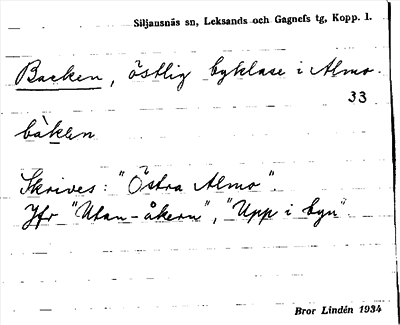 Siljansnäs sn, Leksands och Gagnefs tg, Kopp. l.
Backen, östlig byklase i Almo.
33
bàken
Skrives: "Östra Almo".
Jfr "Utan-åkern", "Upp i byn"
Bror Lindén 1934